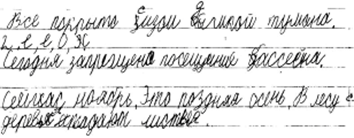 Все покрыто сизой дымкой тумана.
г, е, е, О, Ж
Сегодня запрещено посещение бассейна.
Сейчас ноябрь. Это поздняя осень. В лесу с
деревьев опадают листья.